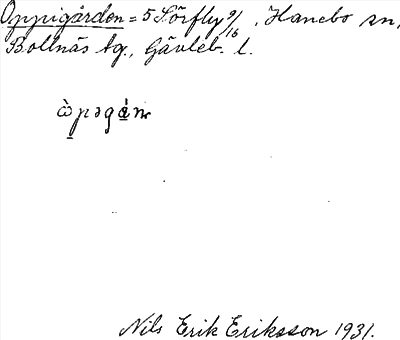 Oppigården = 5 Sörfly 9/16, Hanebo sn,
Bollnäs tg., Gävleb. l.
Nils Erik Eriksson 1931.